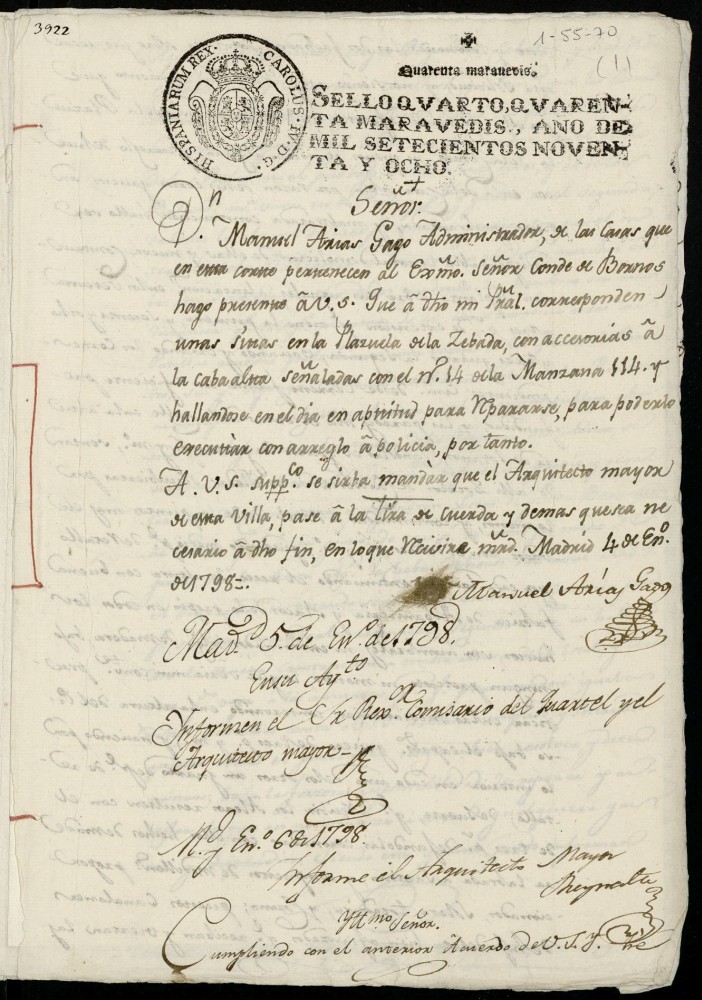 3922
1-55-70
(1)
Quarenta maravedis.
HISPANIARUM REX. CAROLUS IV D.G.
SELLO QVARTO, QVAREN-
TA MARAVEDIS., AÑO DE
MIL SETECIENTOS NOVEN-
TA Y OCHO.
Señor.
Dn. Manuel Arias Gago Administrador, de las Casas que
en esta corte pertenecen al Exmo. Señor Conde de Bornos
hago presente â V. S. Que â dho mi Pral. corresponden
unas sitas en la Plazuela de la Zebada, con accesorias â
la caba alta señaladas con el nº. 14 de la Manzana 114. y
hallandose en el dia en aptitud para repararse, para poderlo
executar con arreglo â policia, por tanto.
A. V. S. suppco. se sirba mandàr que el Arquitecto mayor
de esta Villa, pase â la tira de cuerda y demas que sea ne
cesario â dho fin, en lo que recivira mrd. Madrid 4 de Eno.
de 1798-.
Manuel Arias Gago
Madd. 5. de Eno. de 1798.
En su Aytto
Informen el Sr Rexor. Comisario del Quartel y el
Arquitecto mayor-
Md. y Eno. 6 de 1798.
Informe el Arquitecto Mayor
Yttmo Señor.
Cumpliendo con el anterior Acuerdo de V. S. Y.